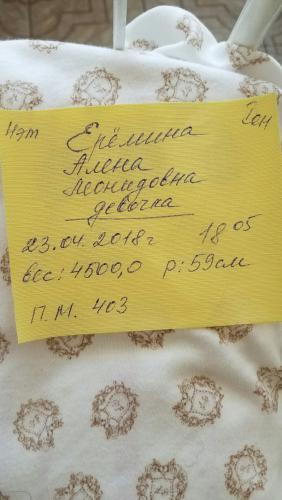 4 эт I он
Ерёмина
Алена
Леонидовна
девочка
23.04.2018 г 18 05
вес: 4500,0 р: 59 см
П.М. 403